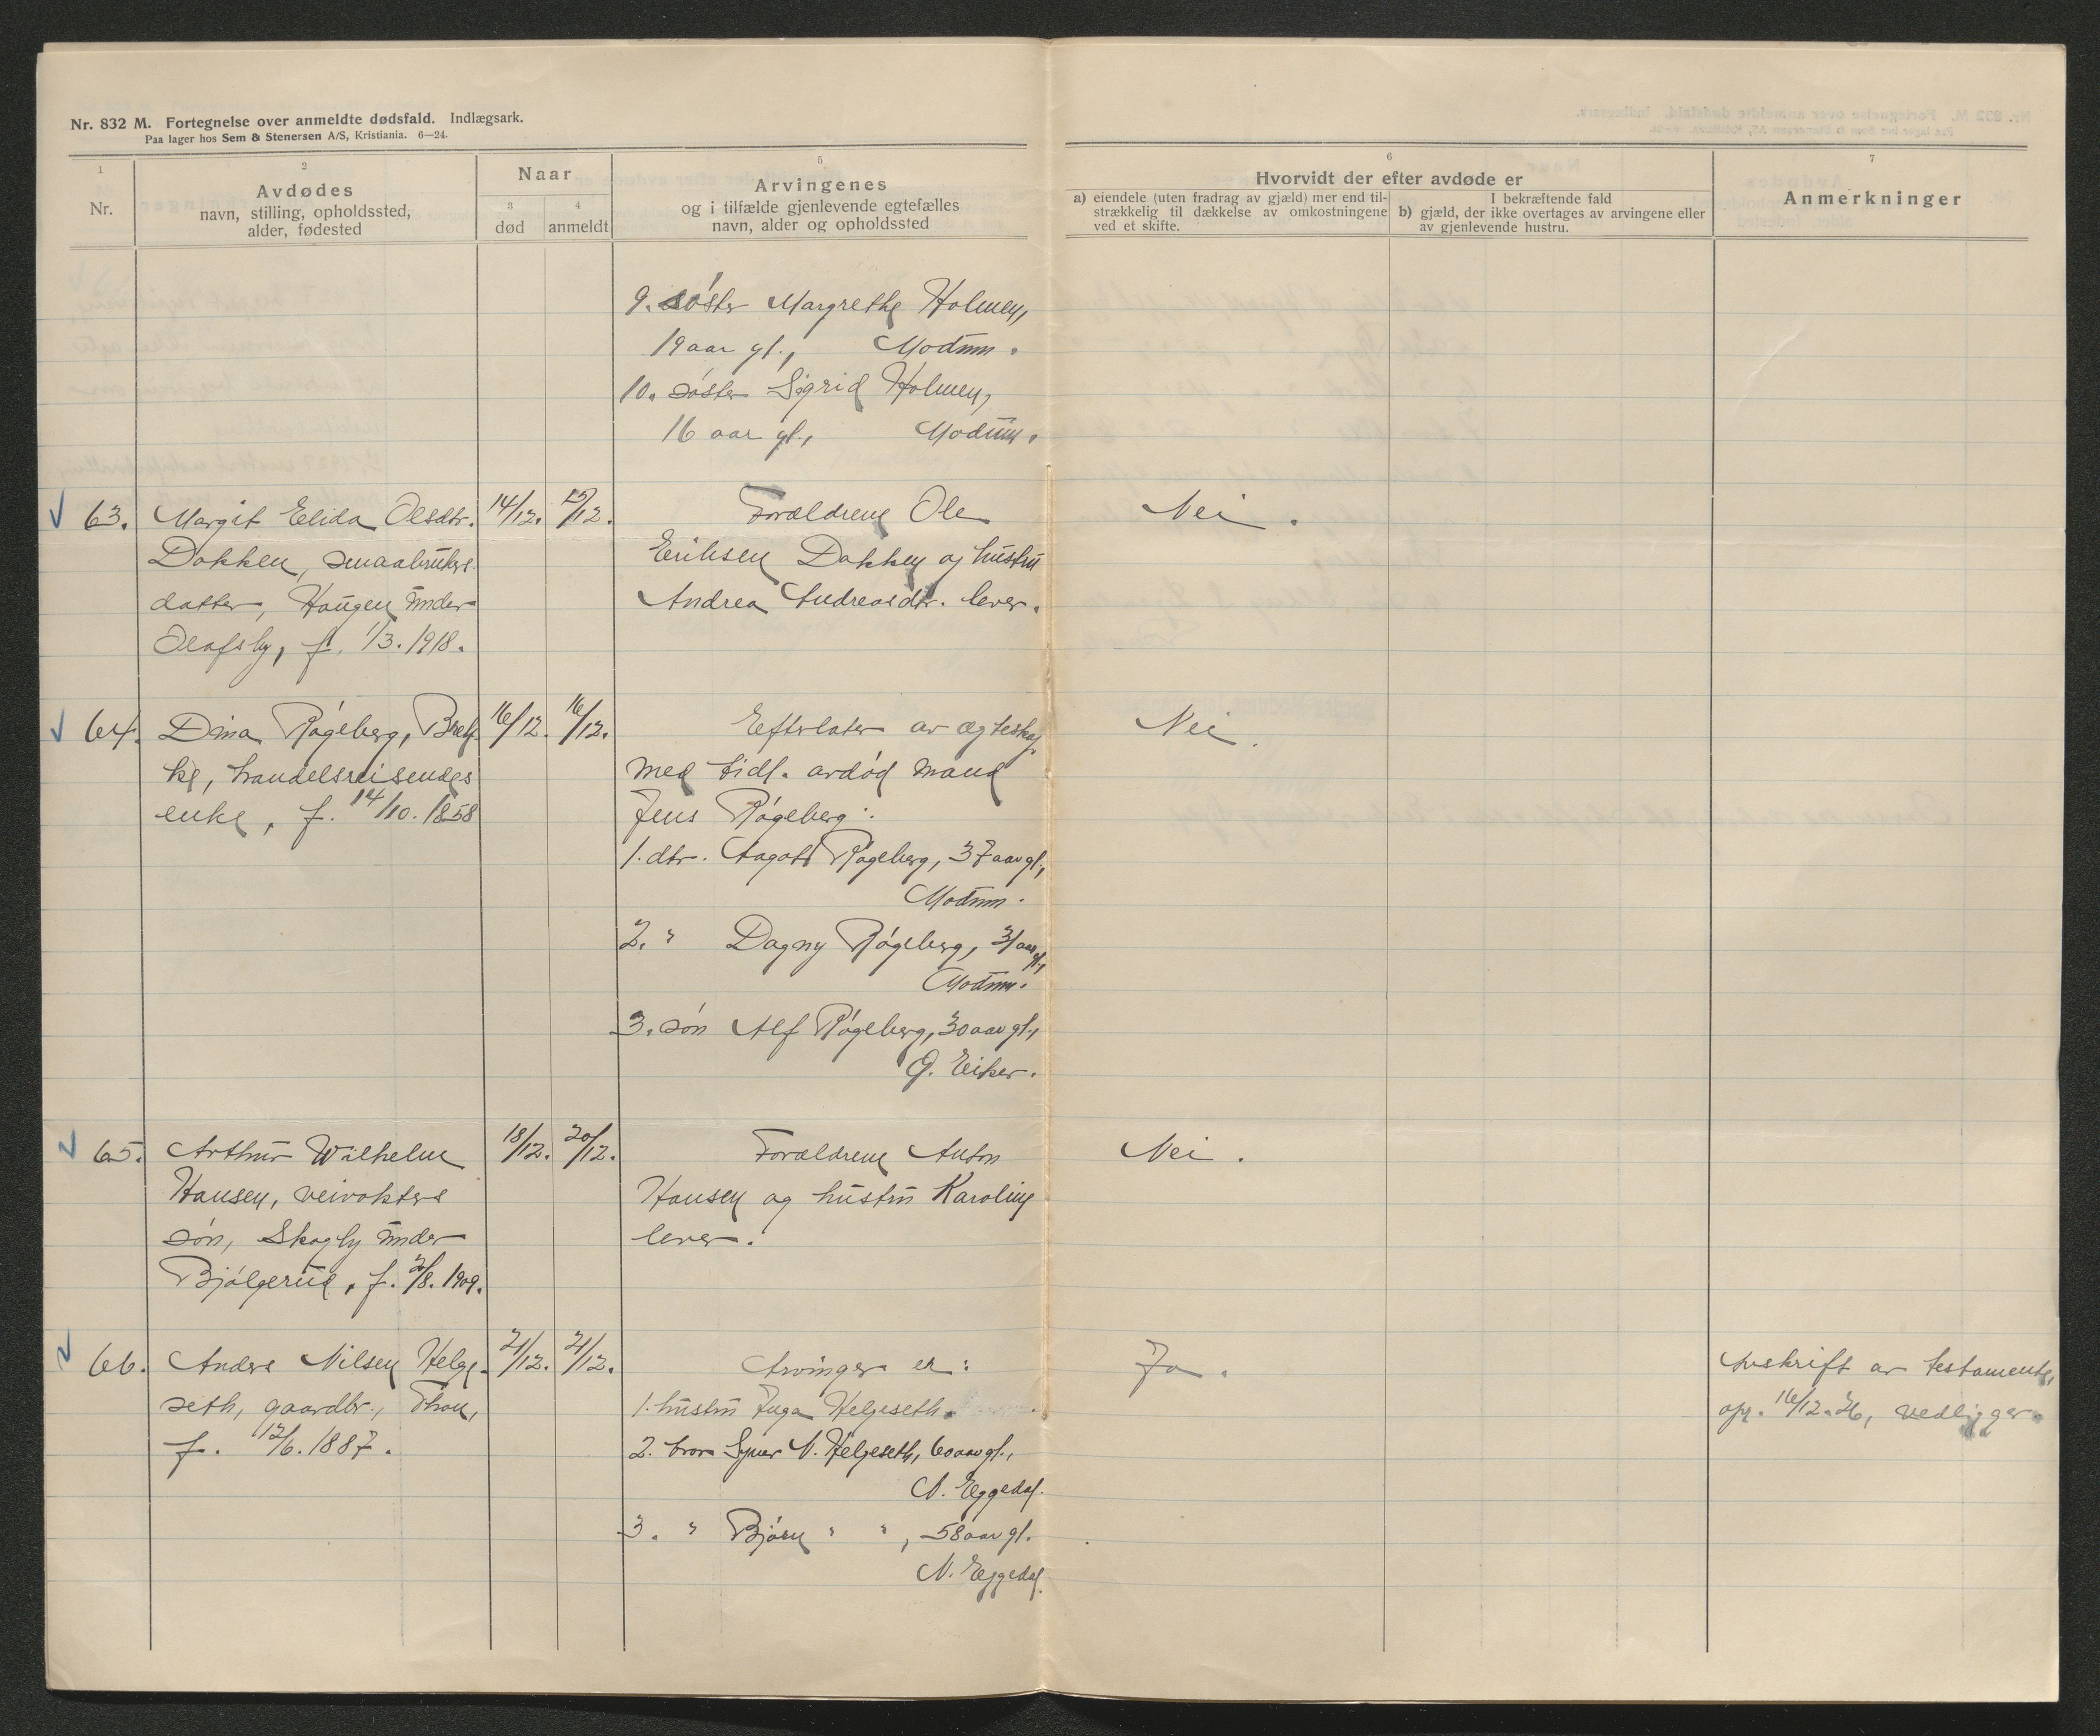 Nr. 832 M. Fortegnelse over anmeldte dødsfald. Indlægsark.
Paa lager hos Sem & Stenersen A/S, Kristiania. 6—24.
1
Nr.
2
Avdødes
navn, stilling, opholdssted,
alder, fødested
Naar
3
død
4
anmeldt
5
Arvingenes
og i tilfælde gjenlevende egtefælles
navn, alder og opholdssted
6
Hvorvidt der efter avdøde er
a) eiendele (uten fradrag av gjæld) mer end til-
strækkelig til dækkelse av omkostningene
ved et skifte.
I bekræftende fald
b) gjæld, der ikke overtages av arvingene eller
av gjenlevende hustru.
7
Anmerkninger
9. søster Margrethe Holmen,
19 aar gl., Modum.
10. søster Sigrid Holmen,
16 aar gl., Modum.
63. Margit Elida Olsdtr. 14/12. 15/12. Forældrene Ole Nei.
Dokken, smaabrukers Eriksen Dokken og hustru
datter, Haugen under Andrea Andreasdtr. lever.
Olafsby, f. 1/3. 1918.
64. Dina Røgeberg, Bret- 16/12. 16/12. Efterlater av egteskap Nei.
ke, handelsreisendes med tidl. avdød mand
enke, f. 14/10. 1858 Jens Røgeberg:
1. dtr. Aagot Røgeberg, 37 aar gl.,
Modum.
2. " Dagny Røgeberg, 31 aar gl.,
Modum.
3. søn Alf Røgeberg, 30 aar gl.,
Ø. Eiker.
65. Arthur Wilhelm 18/12. 20/12. Forældrene Anton Nei.
Hansen, veivokters Hansen og hustru Karoline
søn, Skogly under lever.
Bjølgerud, f. /8. 1909.
66. Anders Nilsen Helge- 21/12. 21/12. Arvinger er: Ja. Avskrift av testamente,
seth, gaardbr., Thon, 1. hustru Inga Helgeseth. opr. 16/12.26, vedligger.
f. 12/6. 1887. 2. bror Syver N. Helgeseth, 60 aar gl.,
N. Eggedal.
3. " Bjørn " ", 58 aar gl.
N. Eggedal.